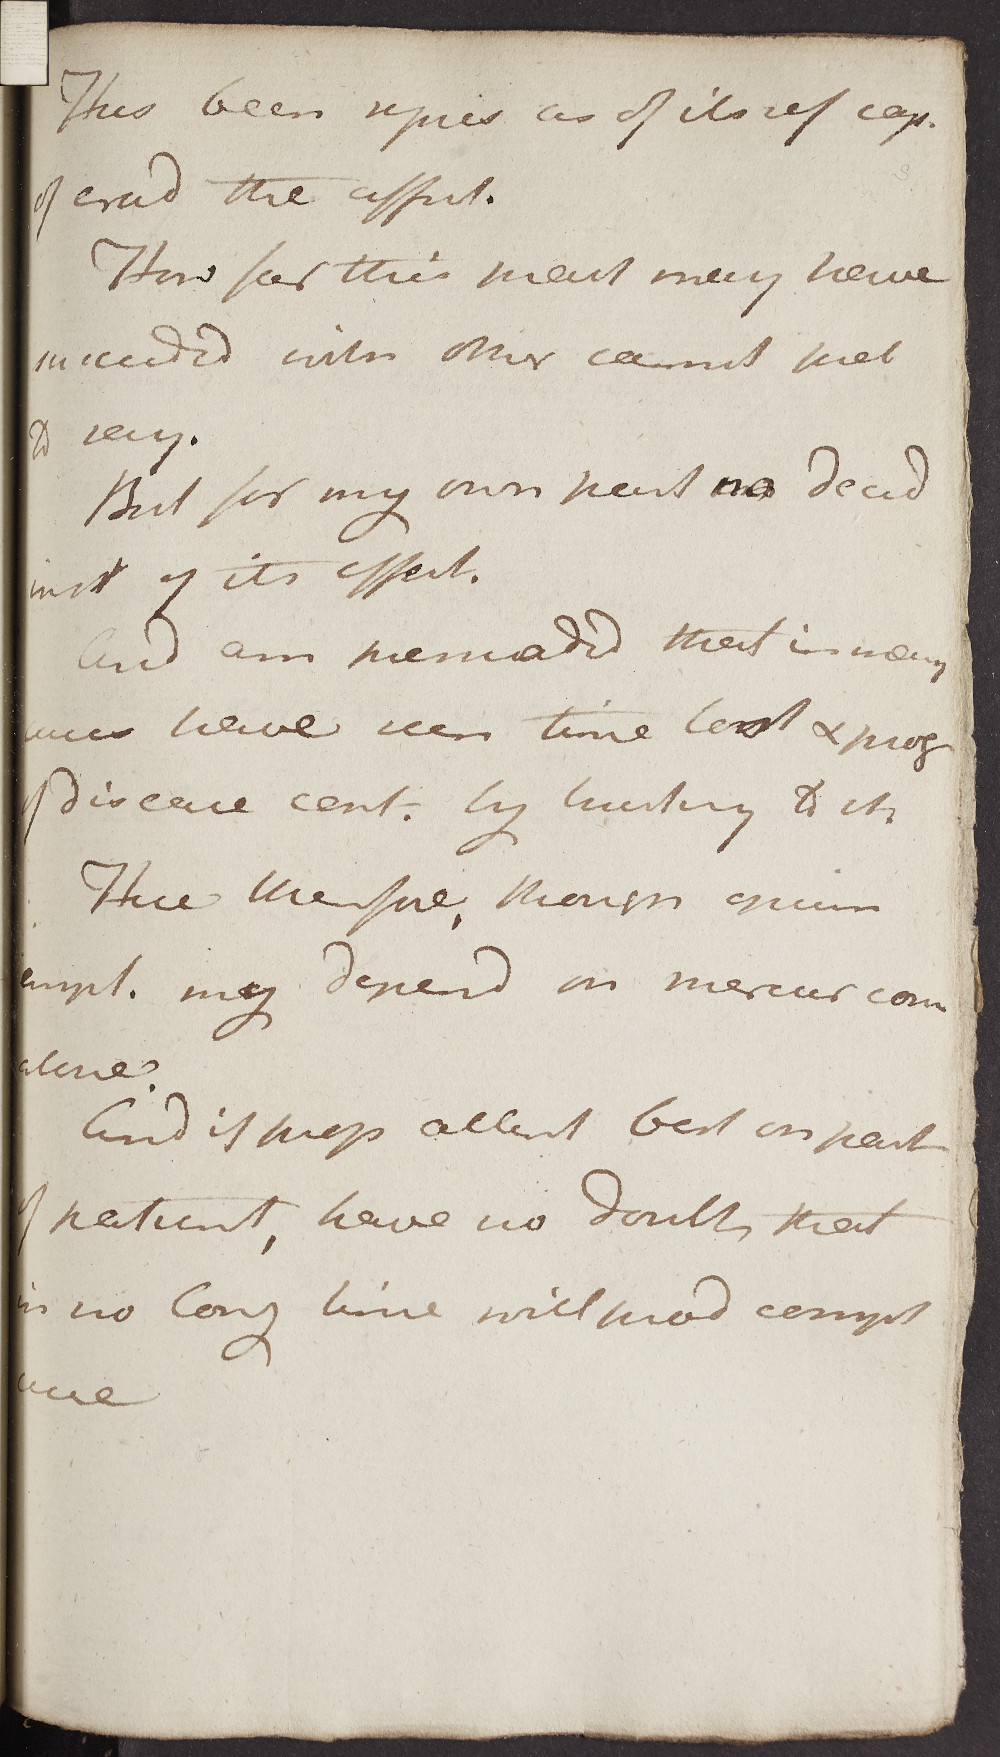 This been repres as of itself cap.
of erad the affect.
How far this pract may have
succeeded with other cannot pret
to say.
But for my own part no decid
inst of its effect.
And am persuaded that in many
cases have seen time lost & prog
of disease cont. by trusting to it.
Here therefore, though opium
empl. may depend on mercur com
alone.
And if prop attent best on part
of patient, have no doubt, that
in no long time will prod compl
cure